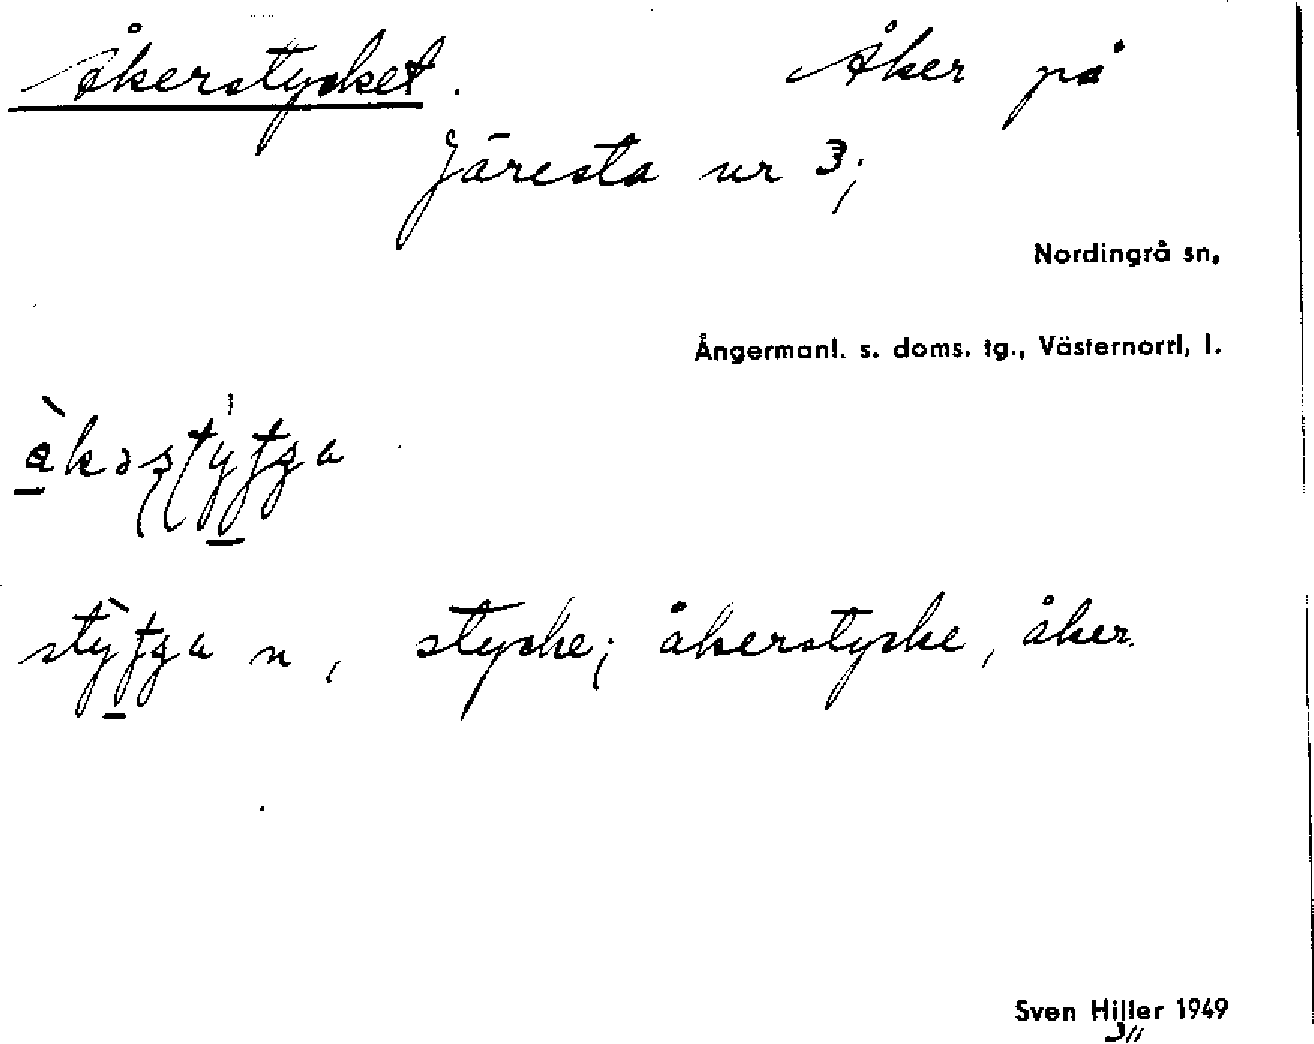 Åkerstycket. Åker på
Järesta nr 3;
Nordingrå sn,
Ångermanl. s. doms. tg., Västernorrl, l.
n, stycke; åkerstycke, åker.
Sven Hiller 1949